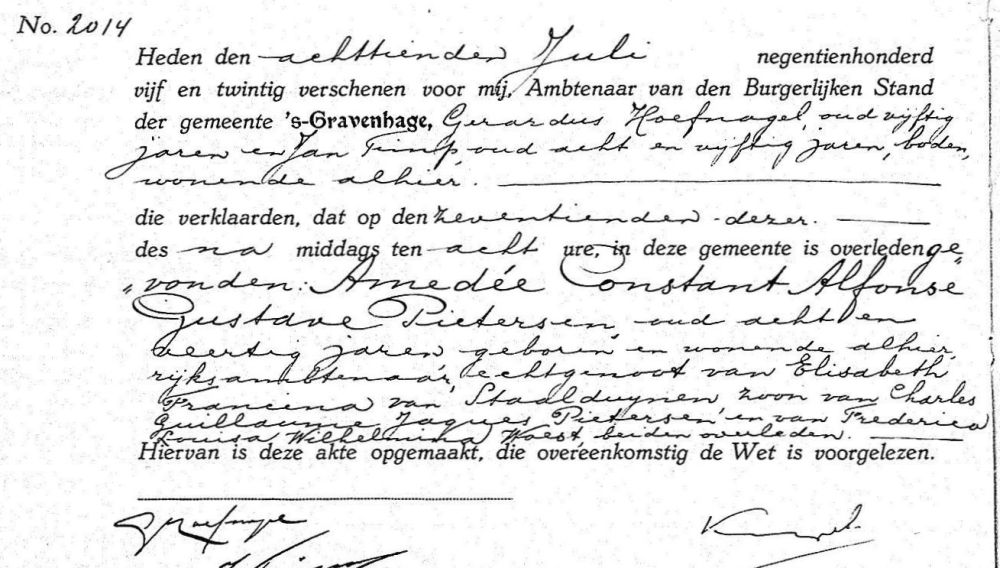 No. 2014
Heden den achttienden Juli negentienhonderd
vijf en twintig verschenen voor mij, Ambtenaar van den Burgerlijken Stand
der gemeente 's-Gravenhage, Gerardus Hoefnagel, oud vijftig
jaren en Jan Timp, oud acht en vijftig jaren, boden,
wonende alhier.
die verklaarden, dat op den zeventienden dezer.
des na middags ten acht ure, in deze gemeente is overleden ge„
„vonden: Amedée Constant Alfonse
Gustave Pietersen, oud acht en
veertig jaren, geboren en wonende alhier,
rijksambtenaar, echtgenoot van Elisabeth
Francina van Staalduynen, zoon van Charles
Guillaume Jaques Pietersen, en van Frederica
Louisa Wilhelmina Woest, beiden overleden.
Hiervan is deze akte opgemaakt, die overeenkomstig de Wet is voorgelezen.